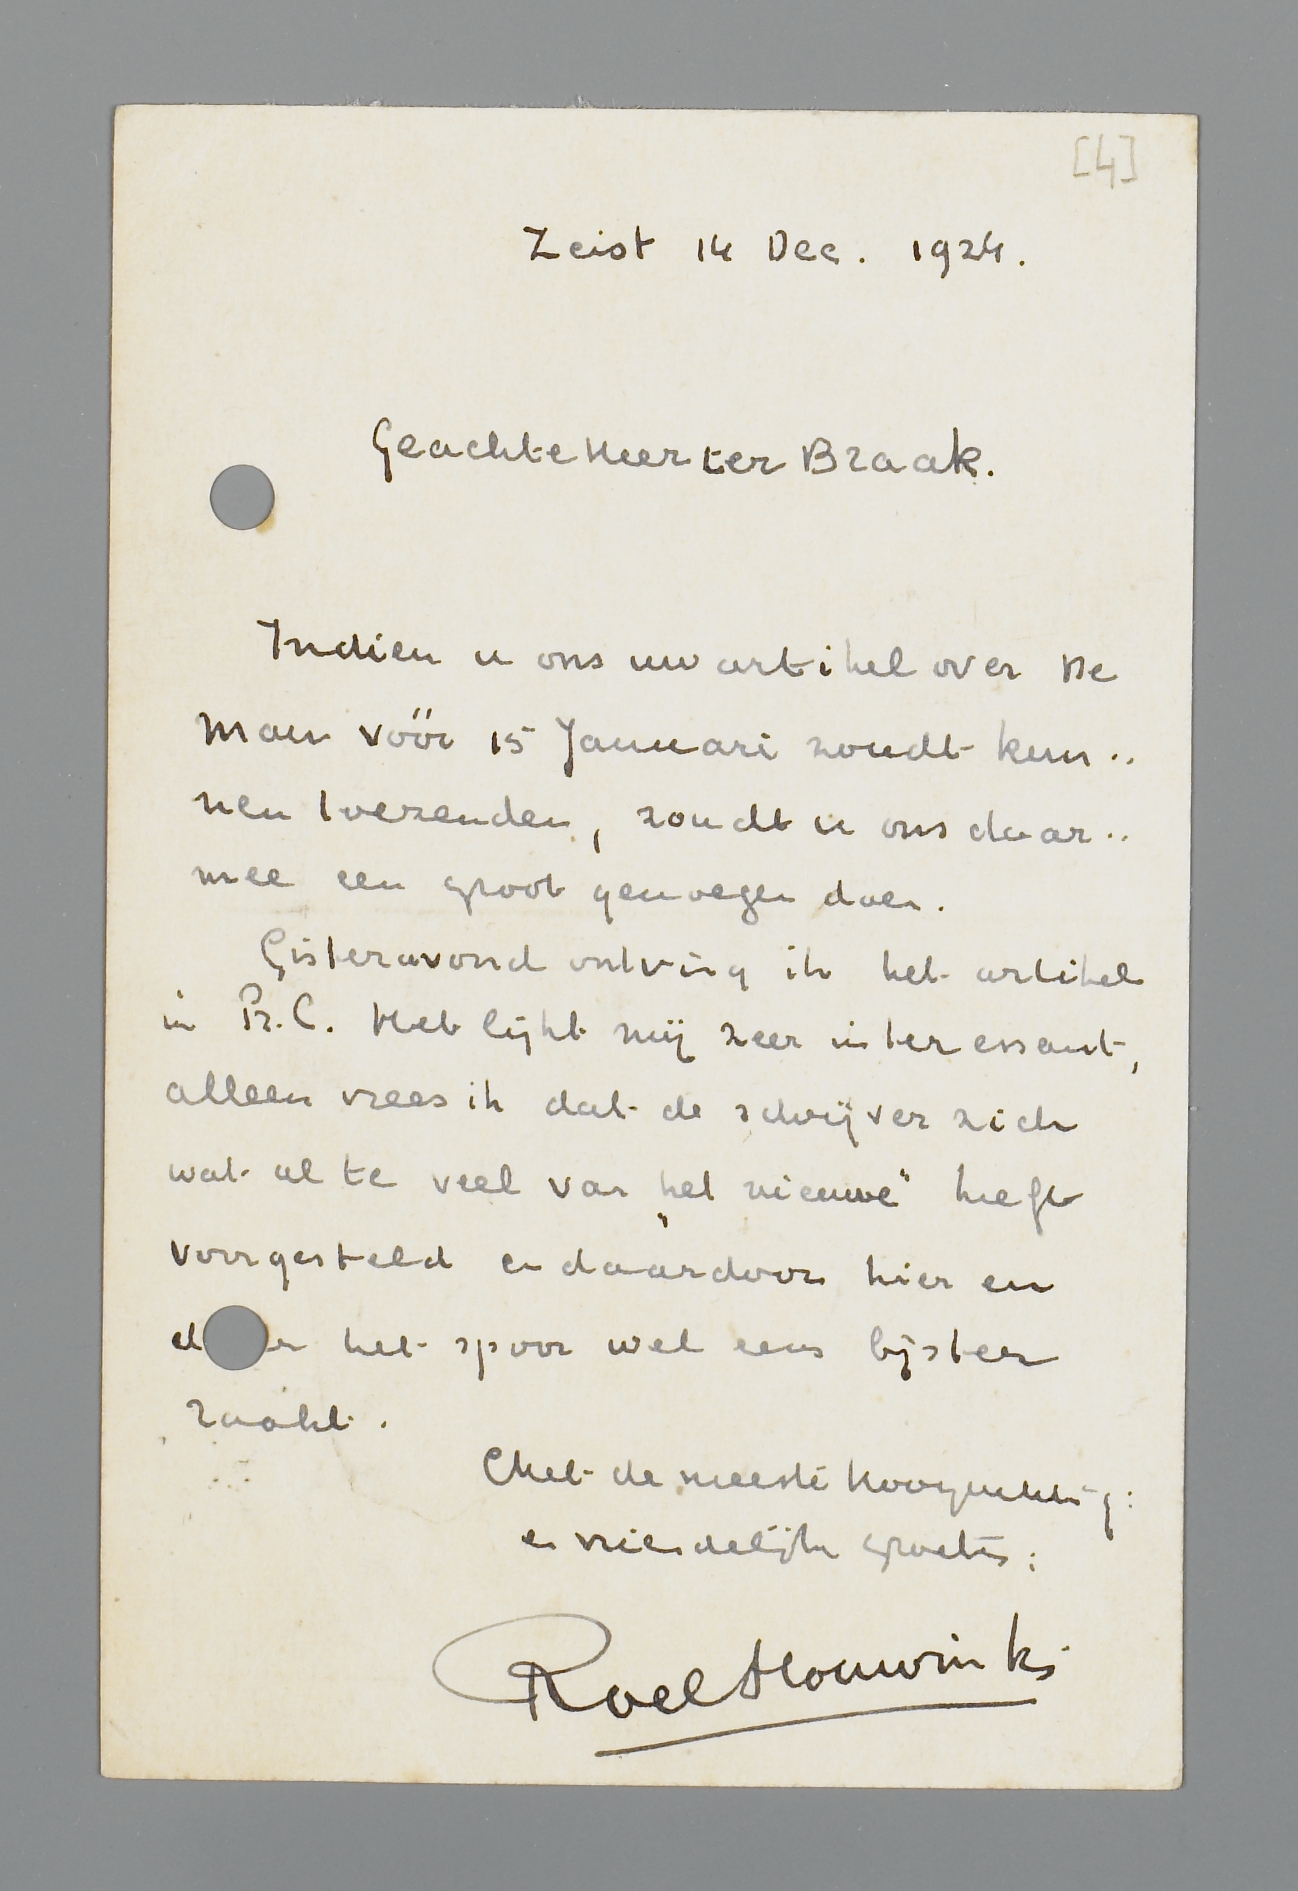 [4]
Zeist 14 Dec. 1924.
Geachte Heer ter Braak.
Indien u ons uw artikel over De
Man vóór 15 Januari zoudt kun..
nen toezenden, zoudt u ons daar..
mee een groot genoegen doen.
Gisteravond ontving ik het artikel
in Pr. C. Het lijkt mij zeer interessant,
alleen vrees ik dat de schrijver zich
wat al te veel van „het nieuwe" heeft
voorgesteld en daardoor hier en
d er het spoor wel eens bijster
raakt.
Met de meeste hoogachting:
en vriendelijke groeten:
Roel Houwink